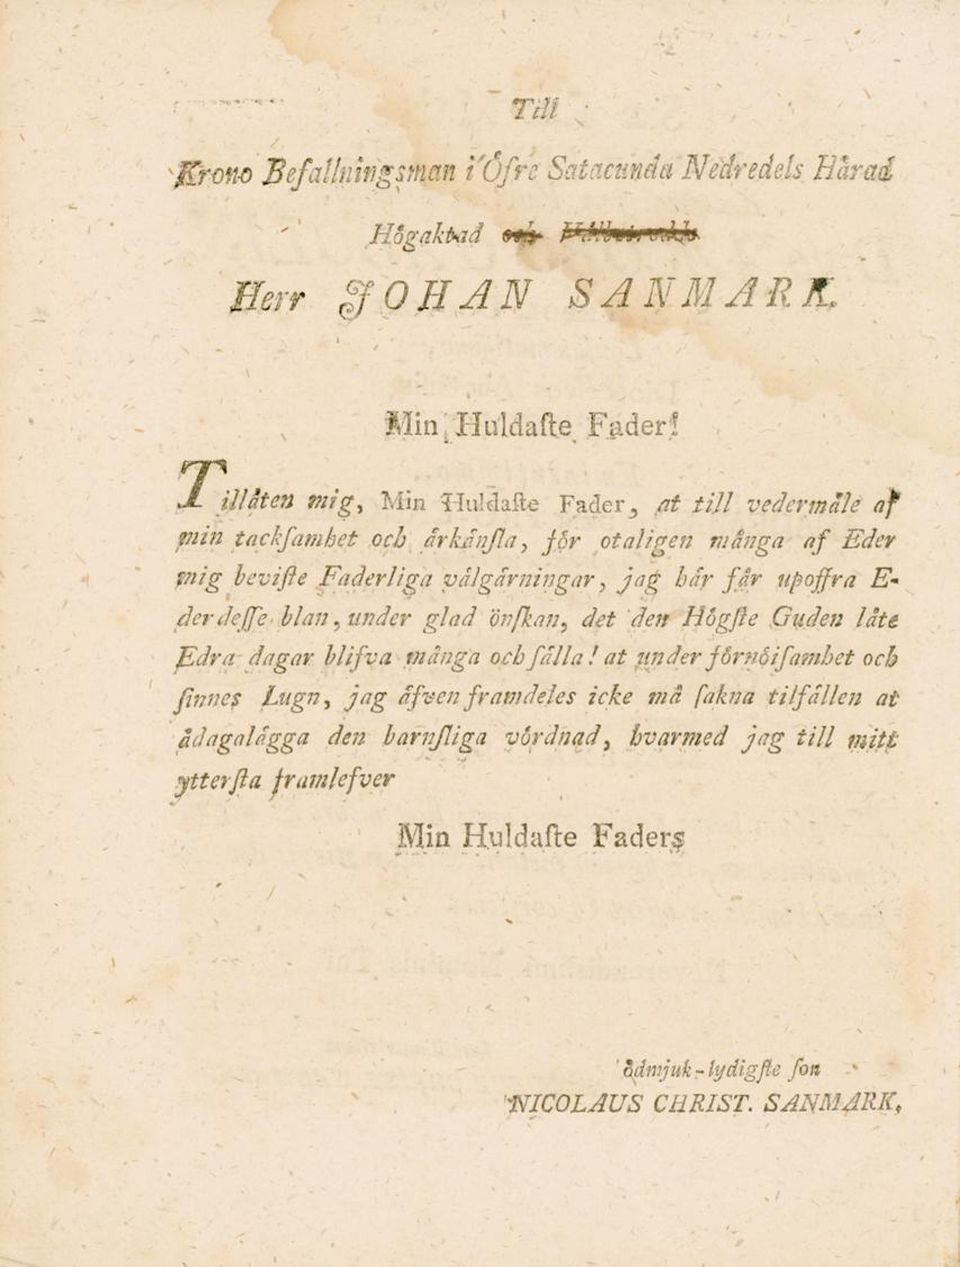 Till
Krono Befallningsman i Öfre Satacunda Nedredels Härad
Högaktad
Herr JOHAN SANMARK.
Min Huldaſte Fader!
Tillåten mig, Min Huldaſte Fader, at till vedermäle af
min tackſamhet och ärkänſla, för otaligen många af Eder
mig beviſte Faderliga välgärningar, jag här får upoffra E-
der deſſe blan, under glad önſkan, det den Högſte Guden låte
Edra dagar blifva många och ſälla! at under förnöiſamhet och
ſinnes Lugn, jag äfven framdeles icke må ſakna tilfällen at
ådagalägga den barnſliga vördnad, hvarmed jag till mitt
ytterſta framlefver
Min Huldaſte Faders
ödmjuk-lydigſte ſon
NICOLAUS CHRIST. SANMARK,